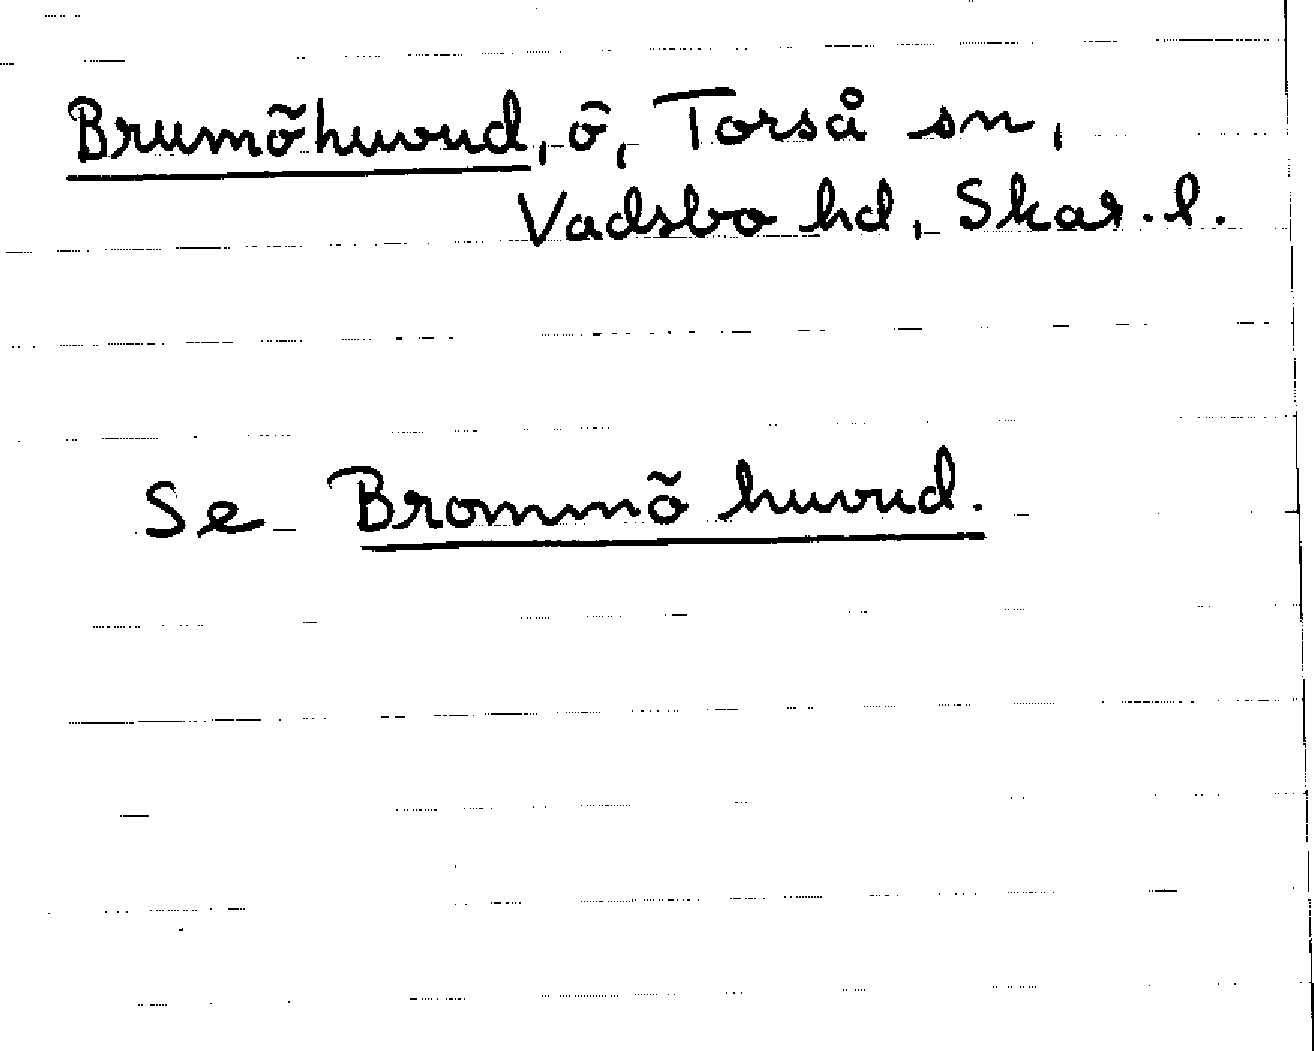 Brumöhuvud, ö, Torså sn,
Vadsbo hd, Skar. l.
Se Brommö huvud.